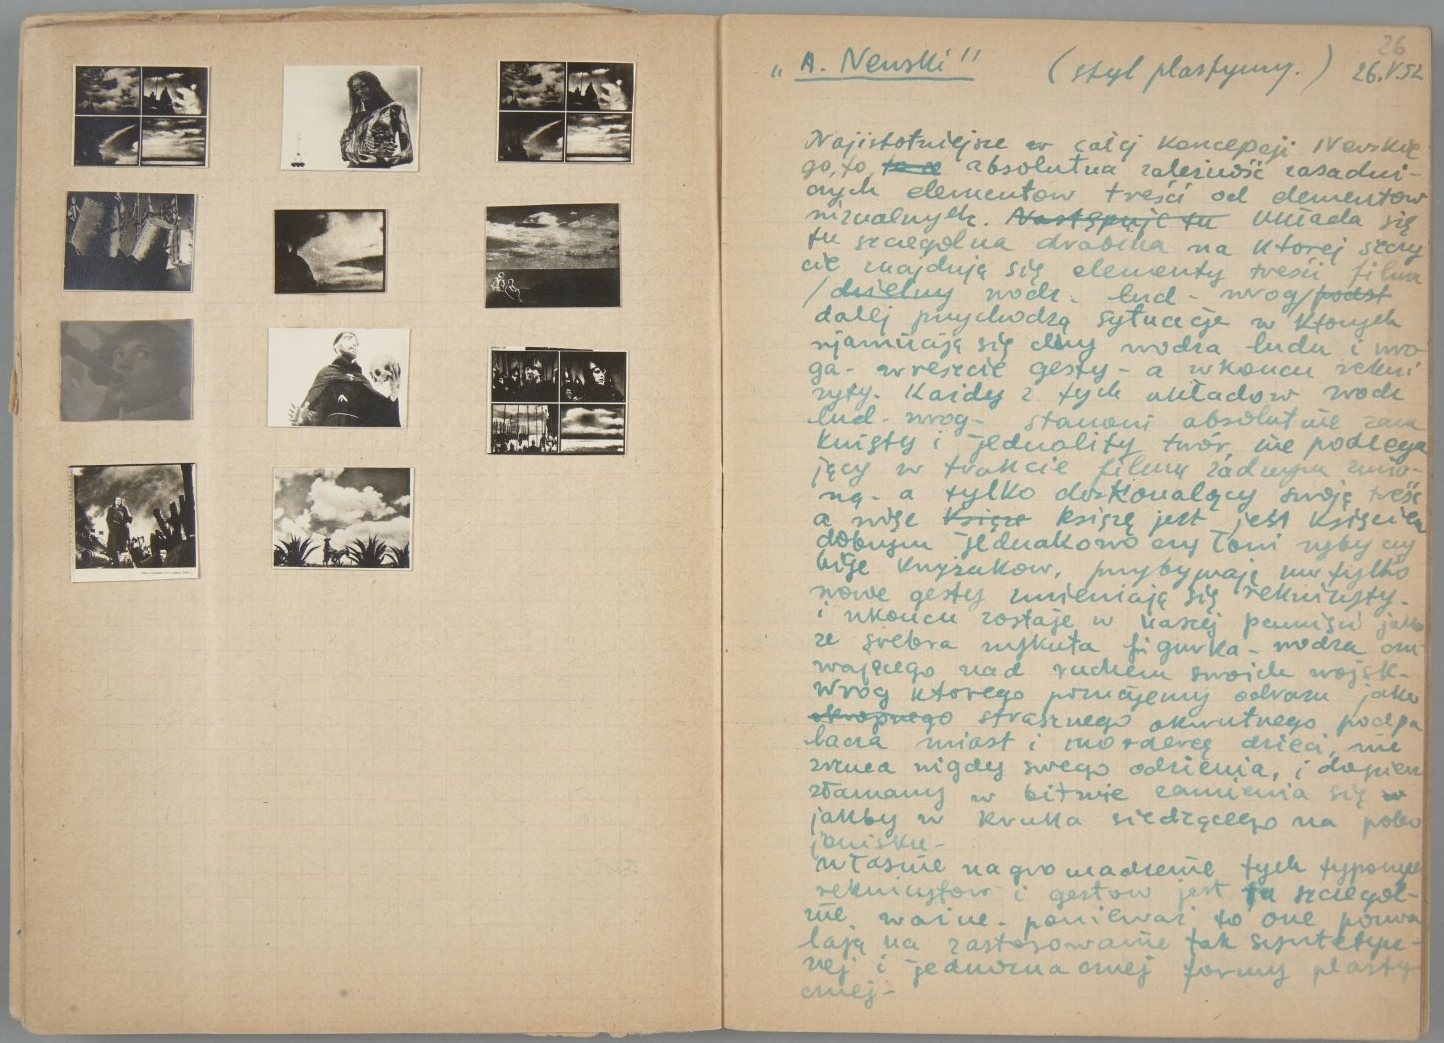 26
„A. Newski” (styl plastyczny.) 26.V.52
Najistotniejsze w całej koncepcji Newskie
go, to, absolutna zależność zasadni-
czych elementow treści od elementow
wizualnych. Następuje tu układa się
tu szczególna drabina na ktorej szczy
cie znajdują się elementy treści filmu
/dzielny wódz - lud - wrog/
dalej przychodzą sytuacje w ktorych
ujawniają się czyny wodza ludu i wro-
ga - wreszcie gesty - a wkońcu rekwi
zyty. Każdy z tych układow wodz
lud - wrog - stanowi absolutnie zam
knięty i jednolity twór, nie podlega
jący w trakcie filmu żadnym zmia-
ną - a tylko doskonalący swoją treść
a więc Książe książę jest jest księciem
dobrym jednakowo czy łowi ryby czy
bije krzyżakow, przybywają mu tylko
nowe gesty zmieniają się rekwizyty.
i wkońcu zostaje w naszej pamięci jako
ze srebra wykuta figurka - wodza czu
wającego nad ruchem swoich wojsk -
Wróg ktorego poznajemy odrazu jako
okropnego strasznego okrutnego podpa
lacza miast i mordercę dzieci, nie
zrzuca nigdy swego odzienia, i dopiero
złamany w bitwie zamienia się w
jakby w kruka siedzącego na pobo
jowisku -
właśnie nagromadzenie tych typowych
rekwizytow i gestow jest tu szczegól-
nie ważne - ponieważ to one pozwa
lają na zastosowanie tak syntetycz-
nej i jednoznacznej formy plasty-
cznej -